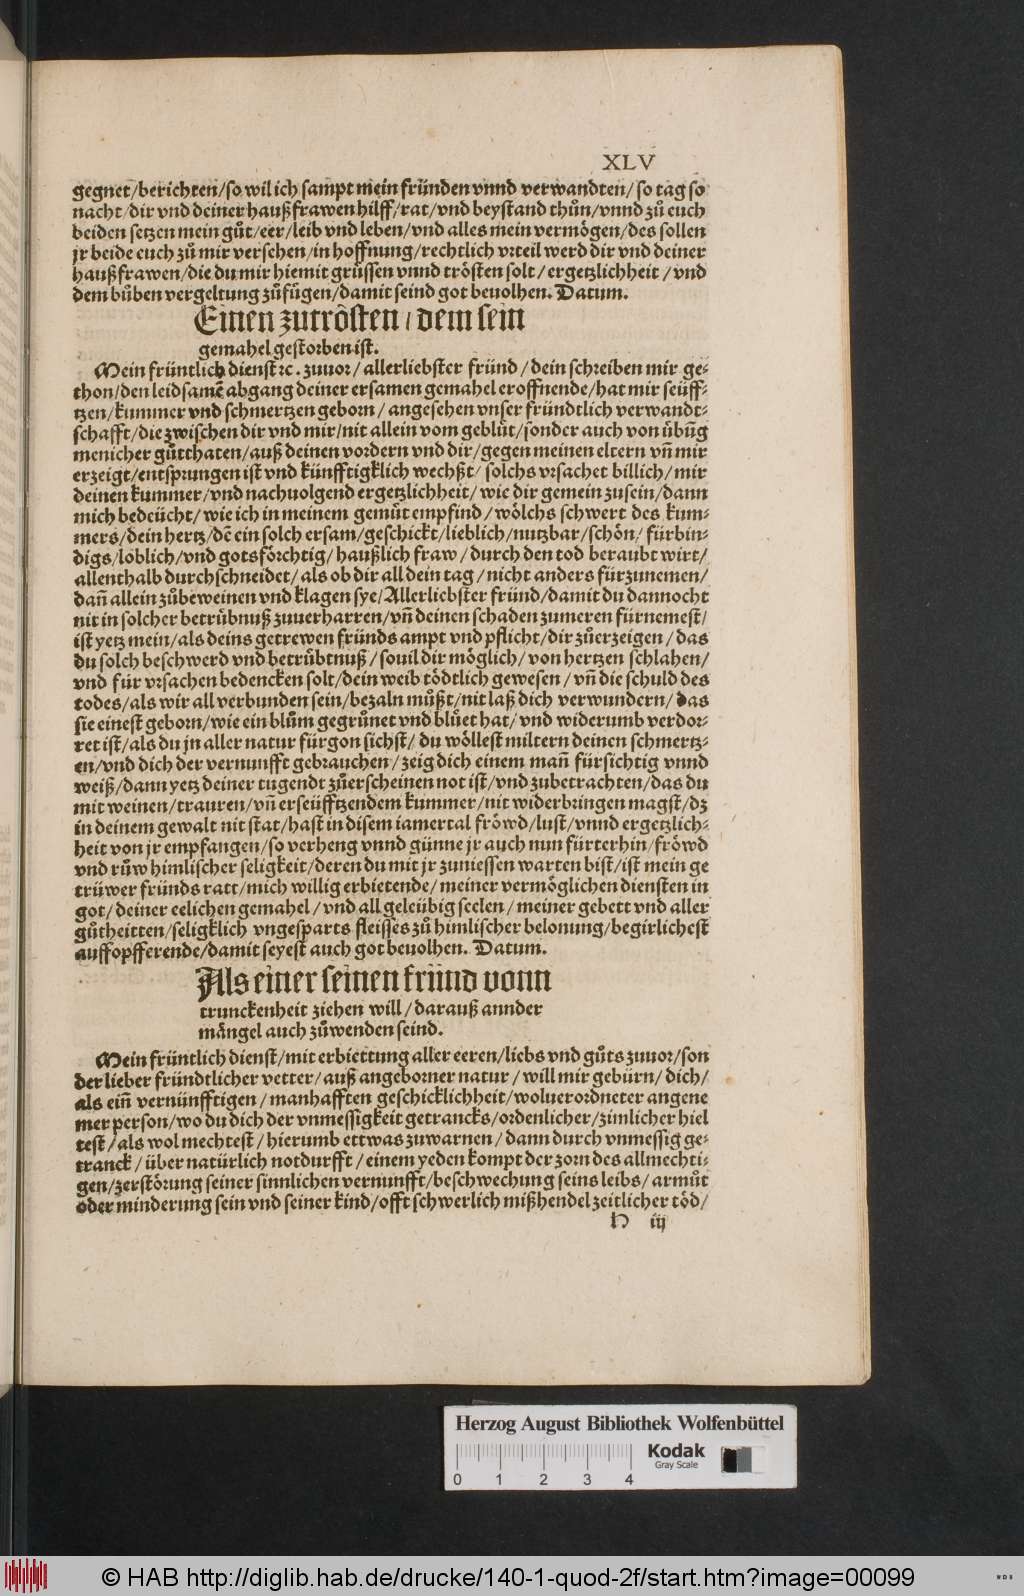 XLV
gegnet/berichten/so wil ich sampt mein fründen vnnd verwandten/so tag so
nacht/dir vnd deiner haußfrawen hilff/rat/vnd beystand thůn/vnnd zů euch
beiden setzen mein gůt/eer/leib vnd leben/vnd alles mein vermögen/des sollen
jr beide euch zů mir versehen/in hoffnung/rechtlich vrteil werd dir vnd deiner
haußfrawen/die du mir hiemit grüssen vnnd trösten solt/ergetzlichheit/vnd
dem bůben vergeltung zůfügen/damit seind got beuolhen. Datum.
Einen zutrösten/dem sein
gemahel gestorben ist.
Mein früntlich dienst ꝛc. zuuor/allerliebster fründ/dein schreiben mir ge⸗
thon/den leidsamē abgang deiner ersamen gemahel eroffnende/hat mir seüff⸗
tzen/kummer vnd schmertzen geborn/angesehen vnser fründtlich verwandt⸗
schafft/die zwischen dir vnd mir/nit allein vom geblüt/sonder auch von übūg
menicher gůtthaten/auß deinen vordern vnd dir/gegen meinen eltern vñ mir
erzeigt/entsprungen ist vnd künfftigklich wechßt/solchs vrsachet billich/mir
deinen kummer/vnd nachuolgend ergetzlichheit/wie dir gemein zusein/dann
mich bedeücht/wie ich in meinem gemüt empfind/wölchs schwert des kum⸗
mers/dein hertz/dē ein solch ersam/geschickt/lieblich/nutzbar/schön/fürbin⸗
digs/löblich/vnd gotsförchtig/haußlich fraw/durch den tod beraubt wirt/
allenthalb durchschneidet/als ob dir all dein tag/nicht anders fürzunemen/
dañ allein zůbeweinen vnd klagen sye/Allerliebster fründ/damit du dannocht
nit in solcher betrübnuß zuuerharren/vñ deinen schaden zumeren fürnemest/
ist yetz mein/als deins getrewen fründs ampt vnd pflicht/dir zůerzeigen/das
du solch beschwerd vnd betrübtnuß/souil dir möglich/von hertzen schlahen/
vnd für vrsachen bedencken solt/dein weib tödtlich gewesen/vñ die schuld des
todes/als wir all verbunden sein/bezaln můßt/nit laß dich verwundern/das
sie einest geborn/wie ein blům gegrünet vnd blüet hat/vnd widerumb verdor⸗
ret ist/als du jn aller natur fürgon sichst/du wöllest miltern deinen schmertz⸗
en/vnd dich der vernunfft gebrauchen/zeig dich einem mañ fürsichtig vnnd
weiß/dann yetz deiner tugendt zůerscheinen not ist/vnd zubetrachten/das du
mit weinen/trauren/vñ erseüfftzendem kummer/nit widerbringen magst/dz
in deinem gewalt nit stat/hast in disem iamertal fröwd/lust/vnnd ergetzlich⸗
heit von jr empfangen/so verheng vnnd günne jr auch nun fürterhin/fröwd
vnd růw himlischer seligkeit/deren du mit jr zuniessen warten bist/ist mein ge
trüwer fründs ratt/mich willig erbietende/meiner vermöglichen diensten in
got/deiner eelichen gemahel/vnd all geleübig seelen/meiner gebett vnd aller
gůtheitten/seligklich vngesparts fleisses zů himlischer belonung/begirlichest
auffopfferende/damit seyest auch got beuolhen. Datum.
Als einer seinen fründ vonn
trunckenheit ziehen will/darauß annder
mängel auch zůwenden seind.
Mein früntlich dienst/mit erbiettung aller eeren/liebs vnd gůts zuuor/son
der lieber fründtlicher vetter/auß angeborner natur/will mir gebürn/dich/
als eiñ vernünfftigen/manhafften geschicklichheit/woluerordneter angene
mer person/wo du dich der vnmessigkeit getrancks/ordenlicher/zimlicher hiel
test/als wol mechtest/hierumb ettwas zuwarnen/dann durch vnmessig ge⸗
tranck/über natürlich notdurfft/einem yeden kompt der zorn des allmechti⸗
gen/zerstörung seiner sinnlichen vernunfft/beschwechung seins leibs/armůt
oder minderung sein vnd seiner kind/offt schwerlich mißhendel zeitlicher töd/
H iij
Herzog August Bibliothek Wolfenbüttel
Kodak
Gray Scale
0 1 2 3 4
© HAB http://diglib.hab.de/drucke/140-1-quod-2f/start.htm?image=00099